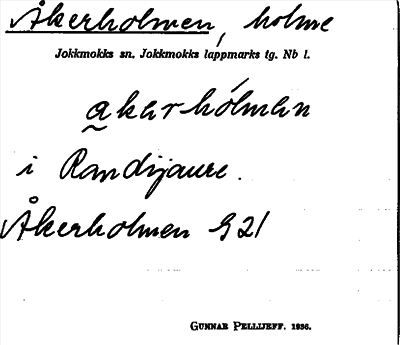 Åkerholmen, holme
Jokkmokks sn. Jokkmokks lappmarks tg. Nb l.
a̰kerhólmen
i Randijaure.
Åkerholmen G 21
GUNNAR PELLIJEFF. 1936.